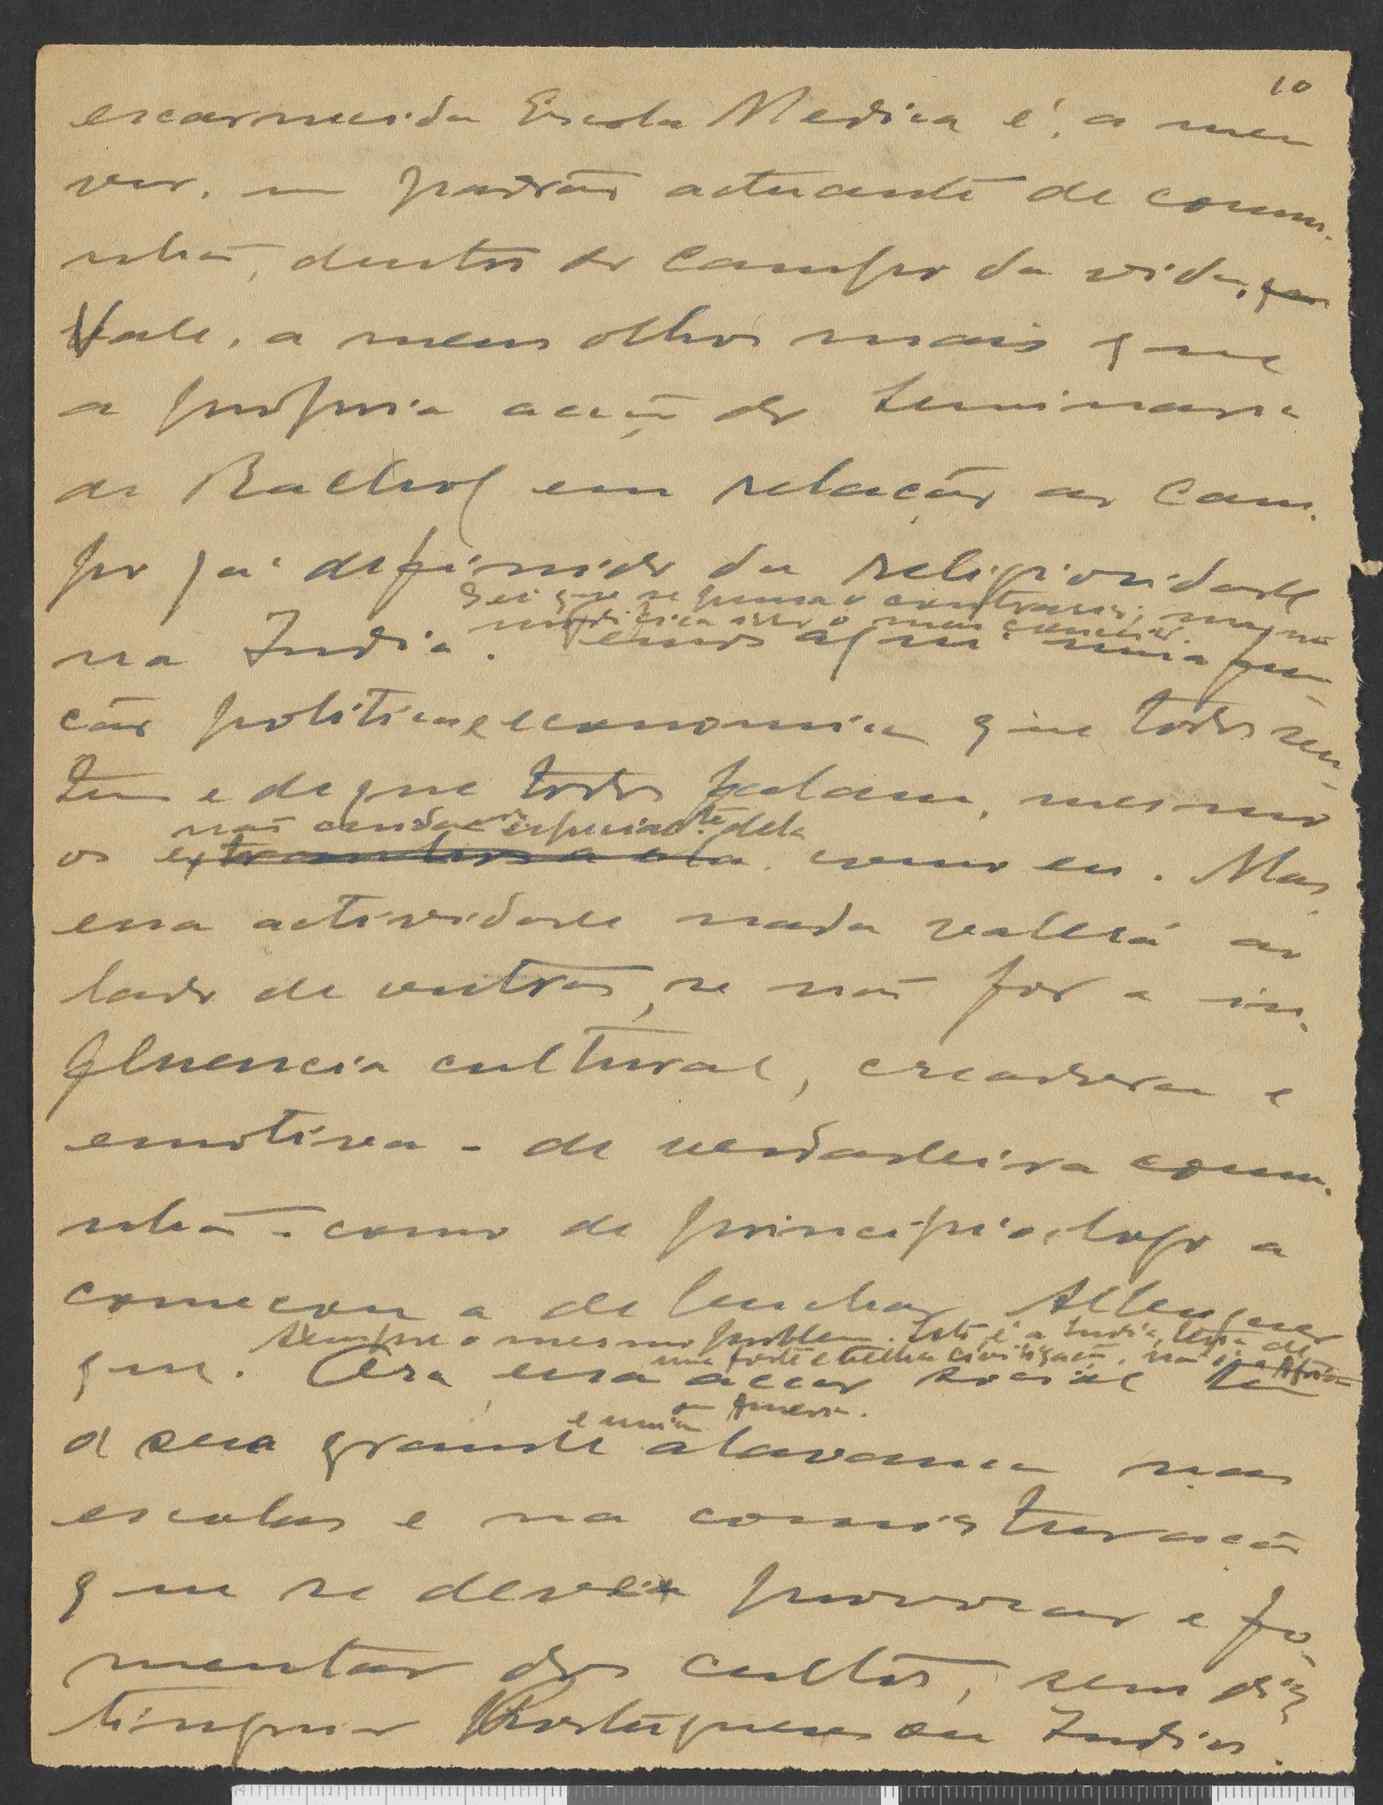 10
escarnecida Escola Medica é, a meu
ver, um padrão actuante de comu-
nhão, dentro do campo da vida,
Vale, a meus olhos mais que
a propria acção do Seminario
de Rachol em relação ao Cam-
po já definido da religiosidade
Sei que se pensa o contrario; mas não
modifica isso o meu
na India. Temos aqui uma fun-
ção politica e economica que todos sen-
tem e de que todos falam, mesmo
não especialte dela
os extranhos a ela como eu. Mas
essa actividade nada valerá ao
lado de outras, se não for a in-
fluencia cultural, creadora e
emotiva - de verdadeira comu-
nhão - como de principio, logo a
começou a desenhar Albuquer
sempre o mesmo problema. Isto é a India, terra de
uma forte e velha civilisação, não é a Africa
que. Ora essa acção social tem
ou America.
e unica
a sua grande alavanca nas
escolas e na comisturação
que se deveria provocar e fo-
mentar dos cultos, sem dis-
tinguir Portugueses ou Indios.